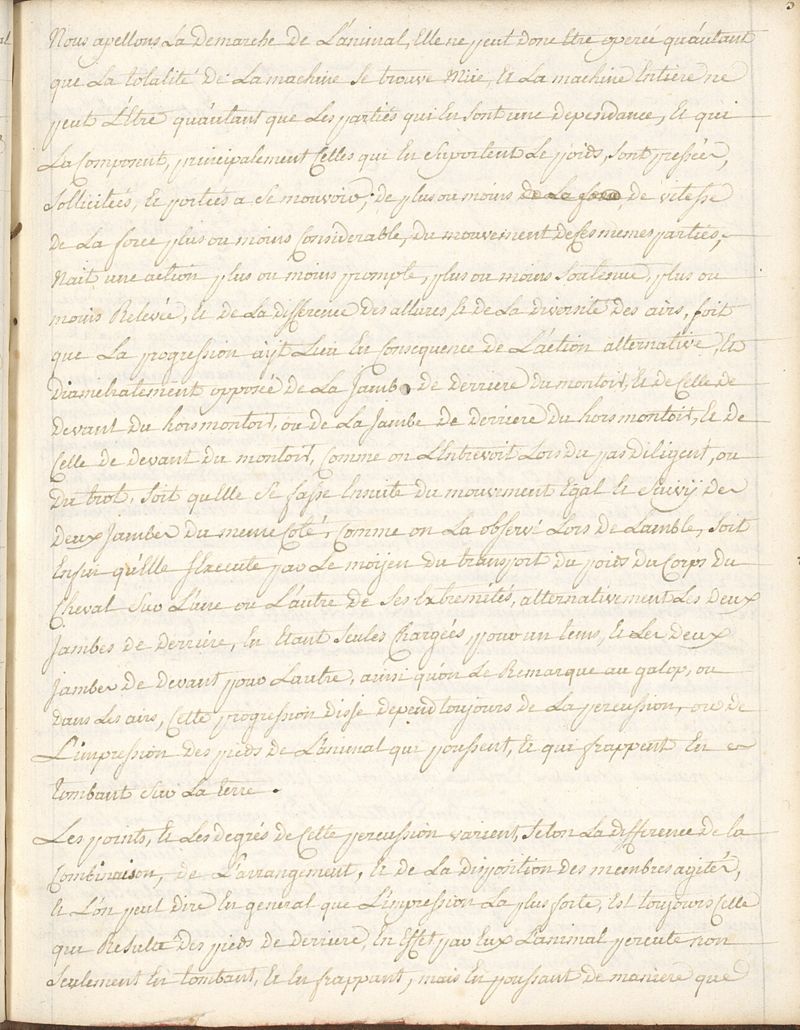 3
Nous apellons La demarche de L'animal, Elle ne peut donc Etre operée qu'autant
que La totalité de La machine se trouve Müe, Et La machine Entiere ne
peut L'Etre qu'autant que Les parties qui En sont une dependance, Et qui
La Composent, principalement Celles qui En suportent Le poids, sont pressées,
sollicitées, Et portées a se mouvoir; de plus ou moins de vitesse
de La force plus ou moins Considerable, du mouvement de ses memes parties,
Nait une action plus ou moins prompte, plus ou moins soutenue, plus ou
moins Relevée, Et de La difference des allures, Et de La diversité des airs, soit
que La progression ayt Lieu En Consequence de L'action alternative, Et
Diametralement opposée de La Jambe de derriere du montoir, Et de Celle de
devant du hors montoir, ou de La Jambe de derriere du hors montoir, Et de
Celle de devant du montoir, Comme on L'Entrevoit Lors du pas diligent, ou
du trot, soit qu'Elle se fasse Ensuite du mouvement Egal Et suivy des
deux Jambes du meme Coté, Comme on La observé Lors de L'amble, soit
Enfin qu'Elle s'Execute par Le moijen du transport du poids du Corps du
Cheval sur L'une ou L'autre de ses Extremités, alternativement Les deux
Jambes de derriere, En Etant seules Chargées pour un tems, Et Les deux
Jambes de devant pour L'autre, ainsi qu'on Le Remarque au galop, ou
dans Les airs, Cette progression disje depend toujours de La percussion, ou de
L'impression des pieds de L'animal qui poussent, Et qui frappent En
tombant sur La terre.
Les points, Et Les degrés de Cette percussion varient, selon La difference de la
Combinaison, de L'arrangement, Et de La disposition des membres agités,
Et L'on peut dire En general que L'impression La plus forte, Est toujours Celle
que Resulte des pieds de derriere, En Effet par Eux L'animal percute non
seulement En tombant, Et En frappant, mais En poussant de maniere que